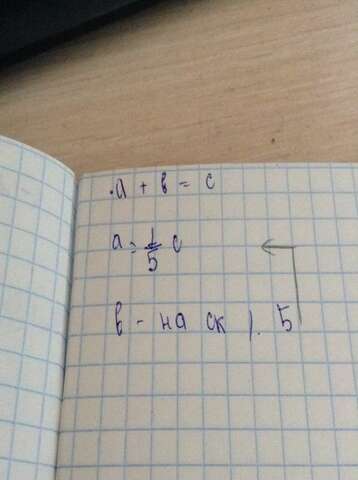 a + в = с
a = 1/5 с
в - на ск ). 5